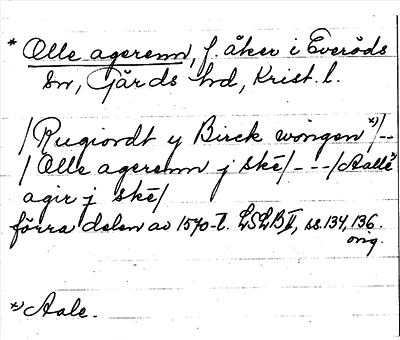 * Olle agerenn, f. åker i Everöds
sn, Gärds hd, Krist. l.
/Rugiordt y Birck wongen *)/--
/Olle agerenn j skē/---/Aallē
agir j skē/
förra delen av 1570-t. LSLB II, ss. 134, 136.
orig.
*) Aale.